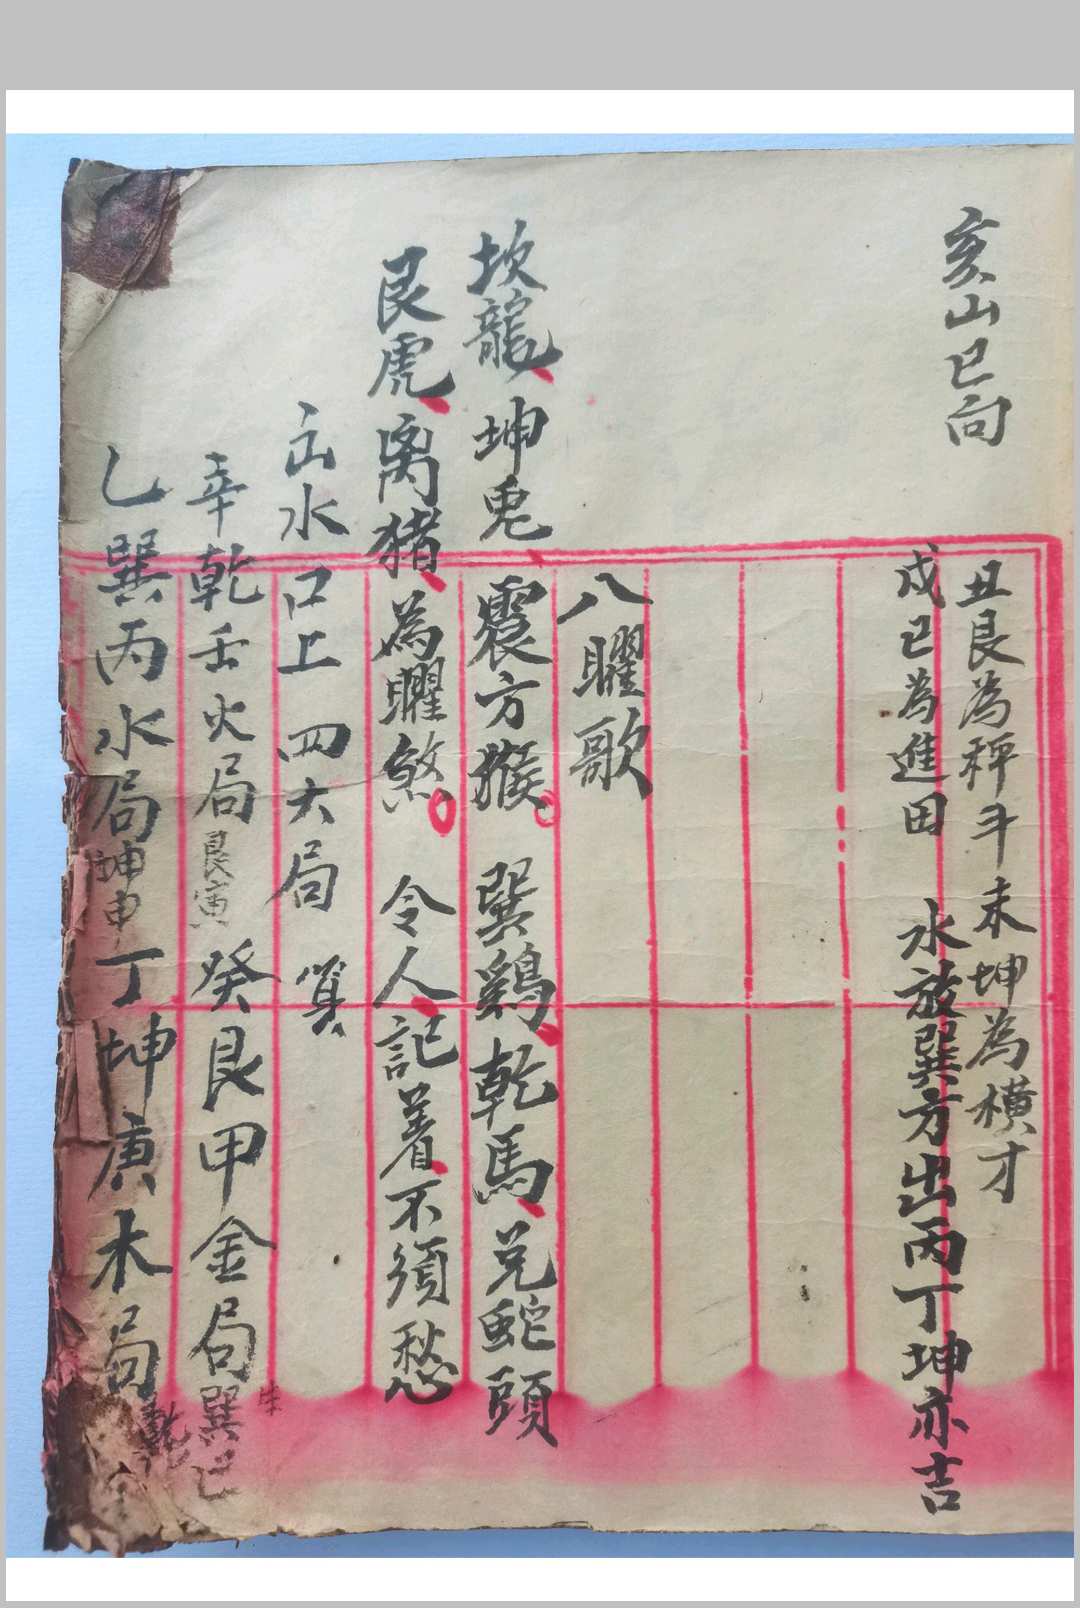 亥山巳向
丑艮為秤斗未坤為橫才
戍巳為進田 水放巽方出丙丁坤亦吉
八曜歌
坎龍坤兎震方猴 巽鷄乾馬兌蛇頭
艮虎离猪為曜煞 令人記着不須愁
水口上 四大局 算
辛乾壬火局艮寅 癸艮甲金局巽巳
乙巽丙水局坤申 丁坤庚木局乾